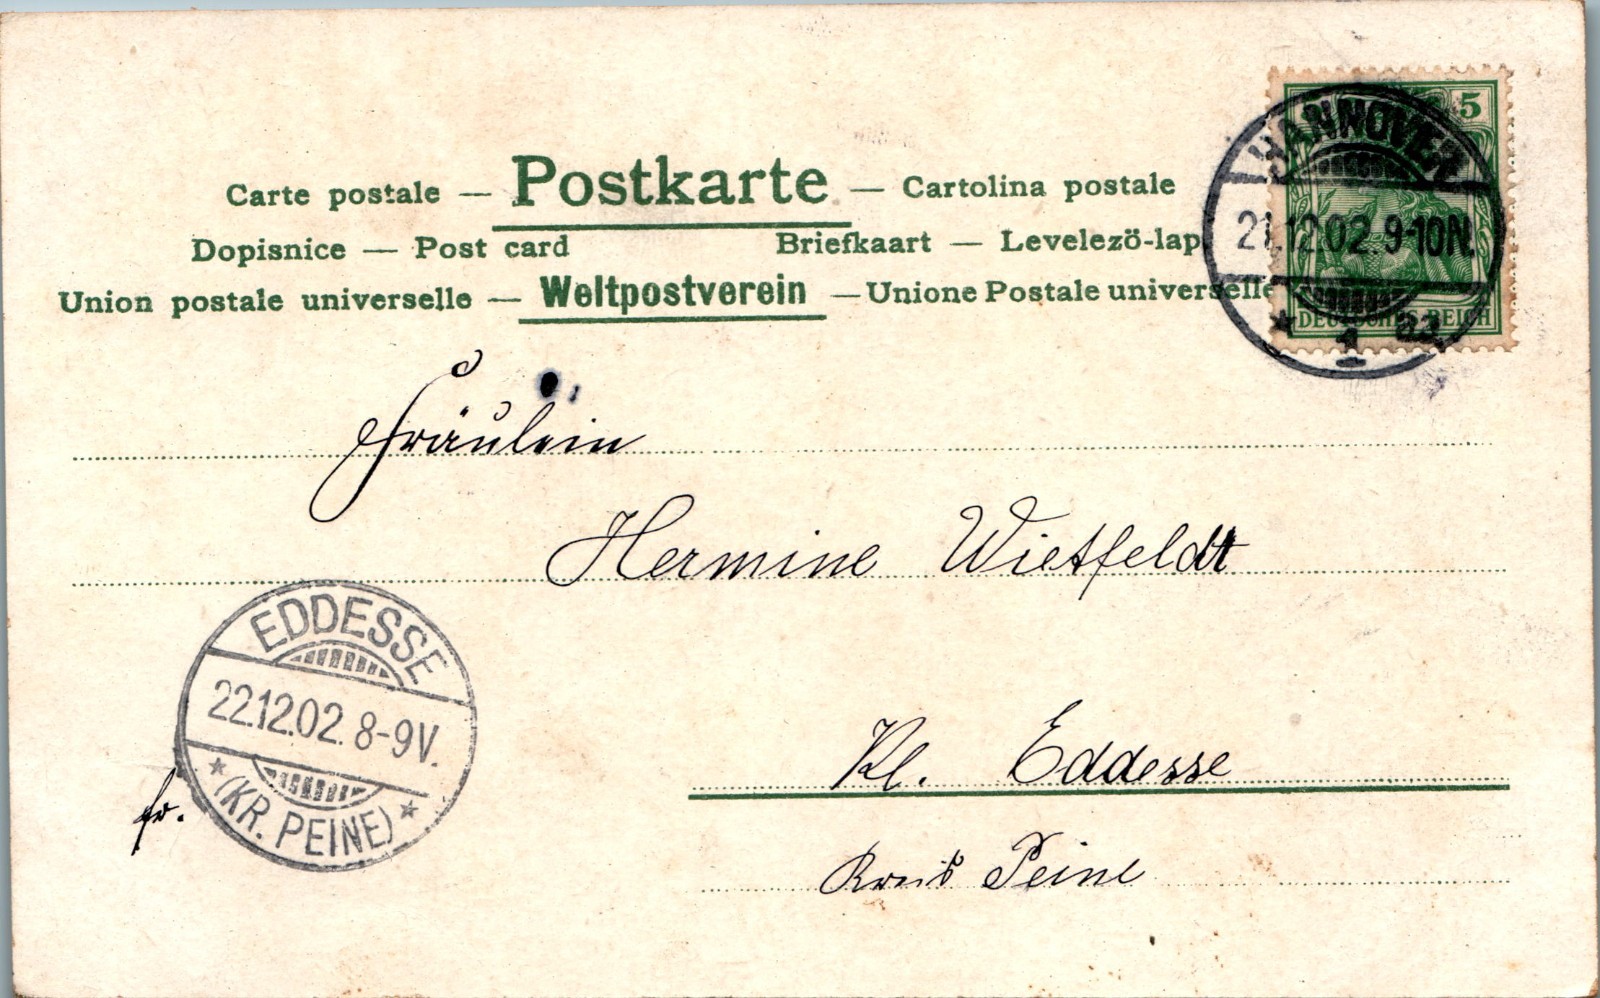 Carte postale — Postkarte — Cartolina postale
Dopisnice — Post card Briefkaart — Levelezö-lap
Union postale universelle — Weltpostverein — Unione Postale universelle
5
HANNOVER
21.12.02. 9-10N.
* 1
DEUTSCHES REICH
Fräulein
Hermine Wietfeldt
EDDESSE
22.12.02. 8-9V.
* (KR. PEINE) *
fr.
Kl. Eddesse
Kreis Peine